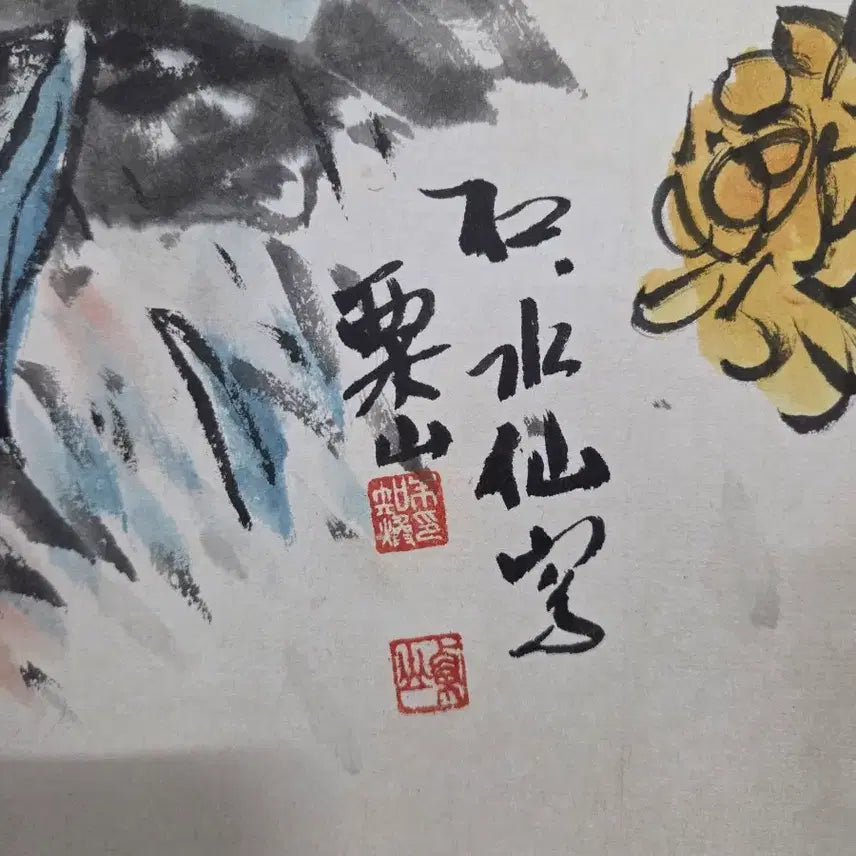 石·水仙寫
栗山